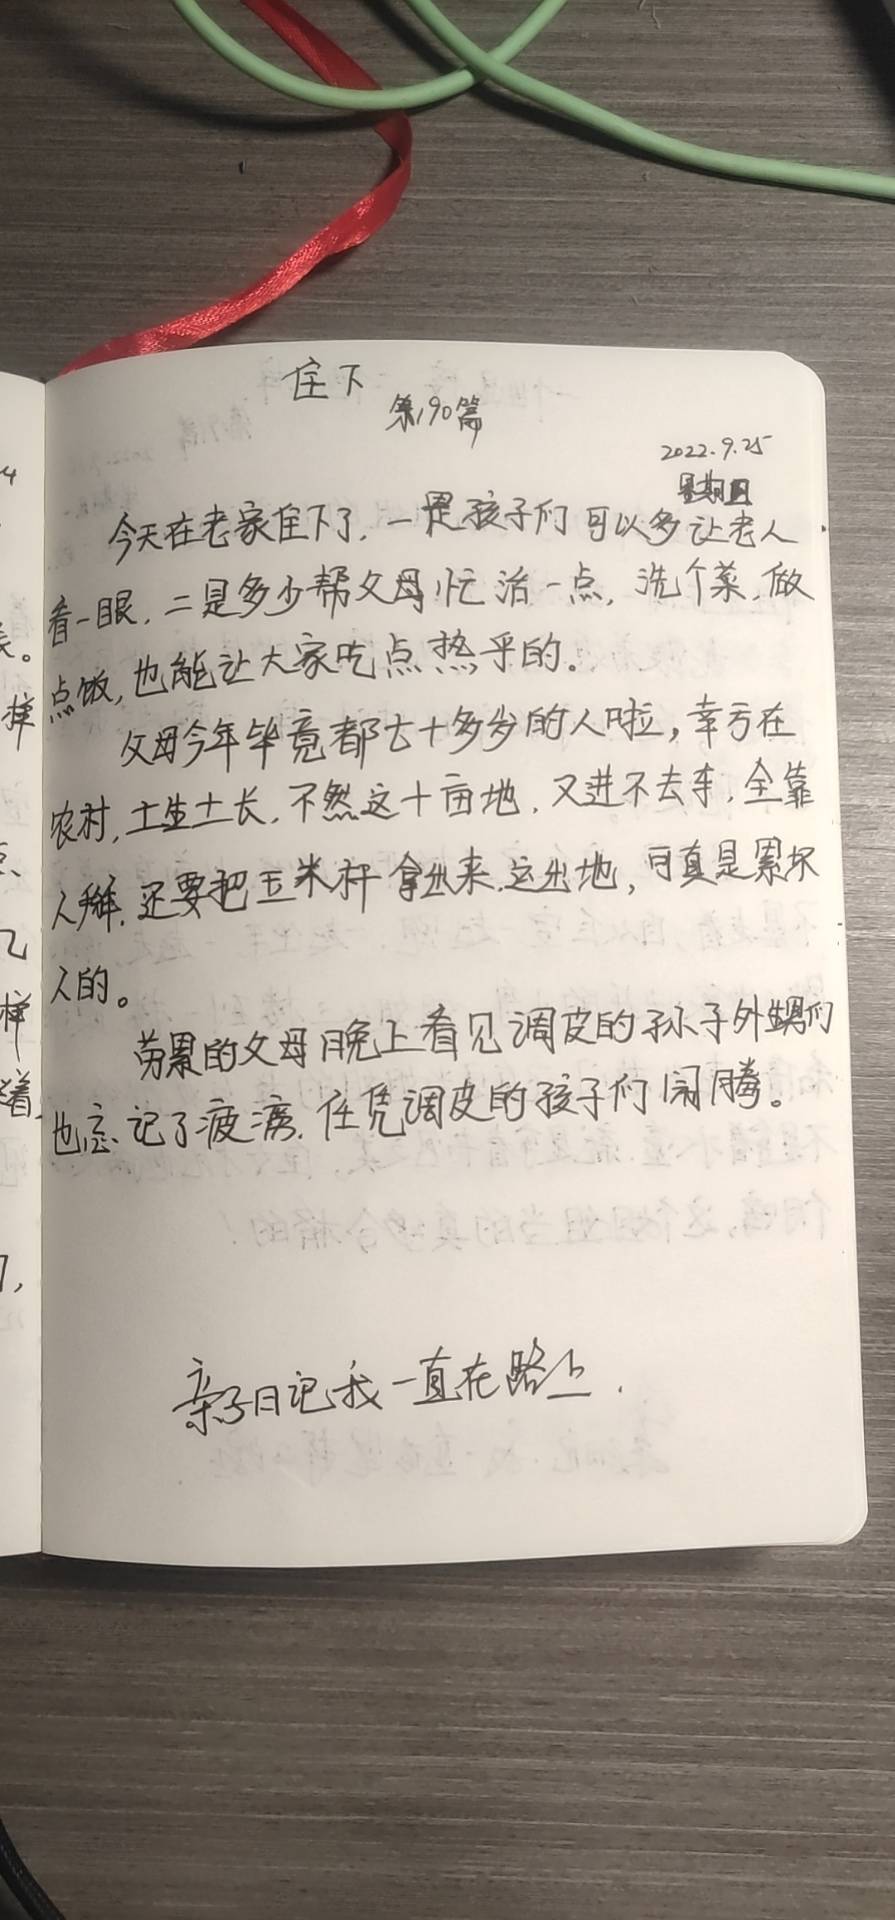 住下
第190篇
2022.9.25
星期日
今天在老家住下了,一是孩子们可以多让老人
看一眼,二是多少帮父母忙活一点,洗个菜,做
点饭,也能让大家吃点热乎的。
父母今年毕竟都七十多岁的人啦,幸亏在
农村,土生土长,不然这十亩地,又进不去车,全靠
人掰,还要把玉米秆拿出来,运出地,可真是累坏
人的。
劳累的父母晚上看见调皮的孙子外甥们
也忘记了疲惫,任凭调皮的孩子们闹腾。
亲子日记我一直在路上.